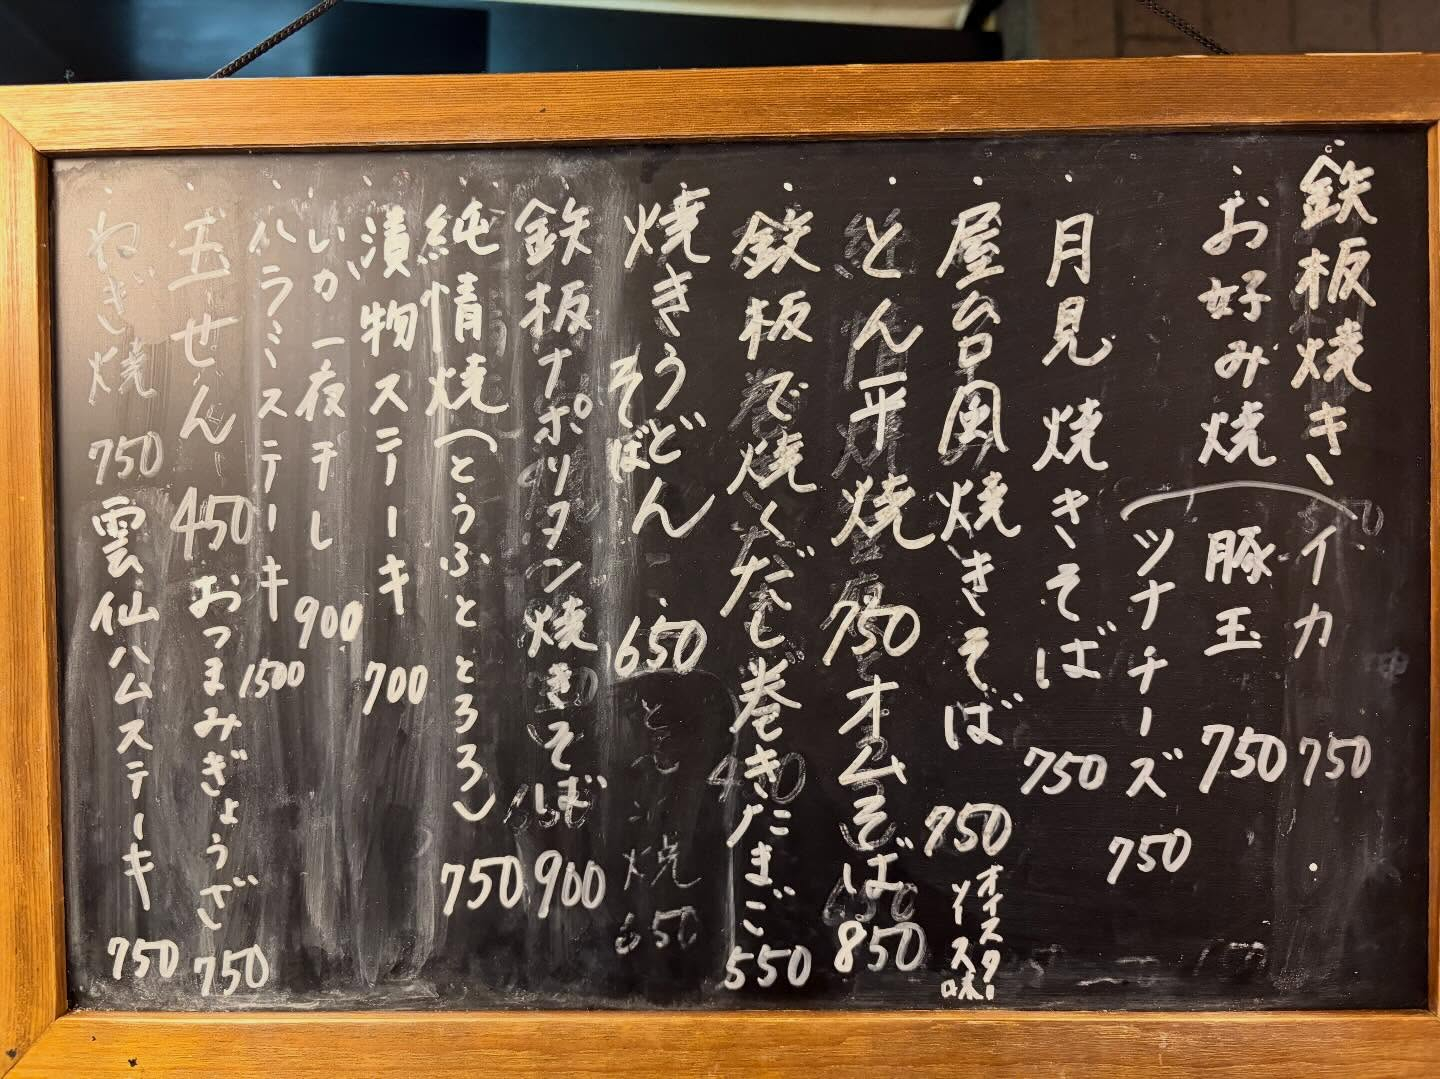 ・鉄板焼き
イカ 750
・お好み焼
豚玉 750
ツナチーズ 750
・月見焼きそば 750
・屋台風焼きそば 750
オイスターソース味
・とん平焼 750
オムそば 850
・鉄板で焼くだし巻きたまご 550
・焼きうどん
そば
650
・鉄板ナポリタン焼きそば 900
・純情焼(とうふととろろ) 750
・漬物ステーキ 700
・いか一夜干し 900
・ハラミステーキ 1500
・玉せん 450
おつまみぎょうざ 750
・ねぎ焼 750
雲仙ハムステーキ 750